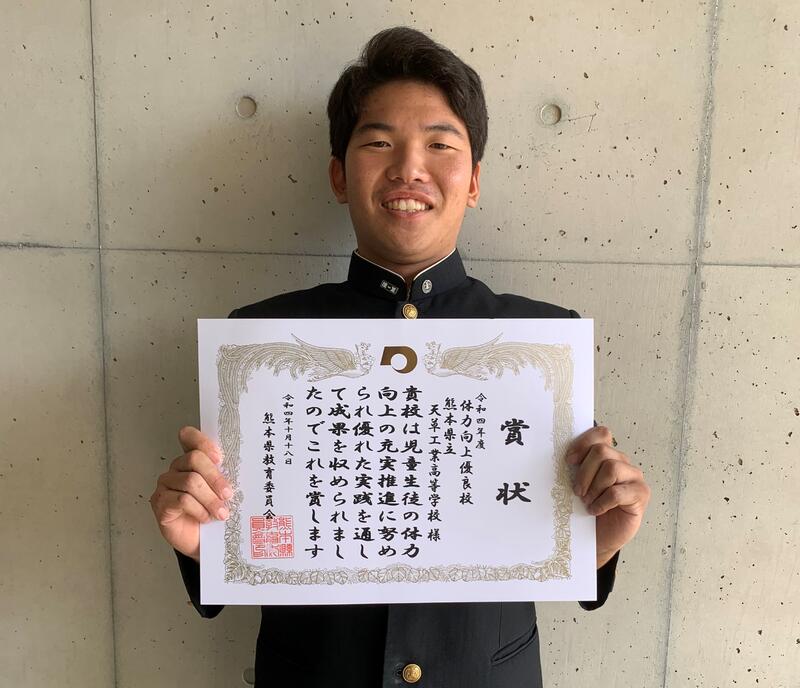 賞状
令和四年度
体力向上優良校
熊本県立
天草工業高等学校 様
貴校は児童生徒の体力
向上の充実推進に努め
られ優れた実践を通し
て成果を収められまし
たのでこれを賞します
令和四年十月十八日
熊本県教育委員会